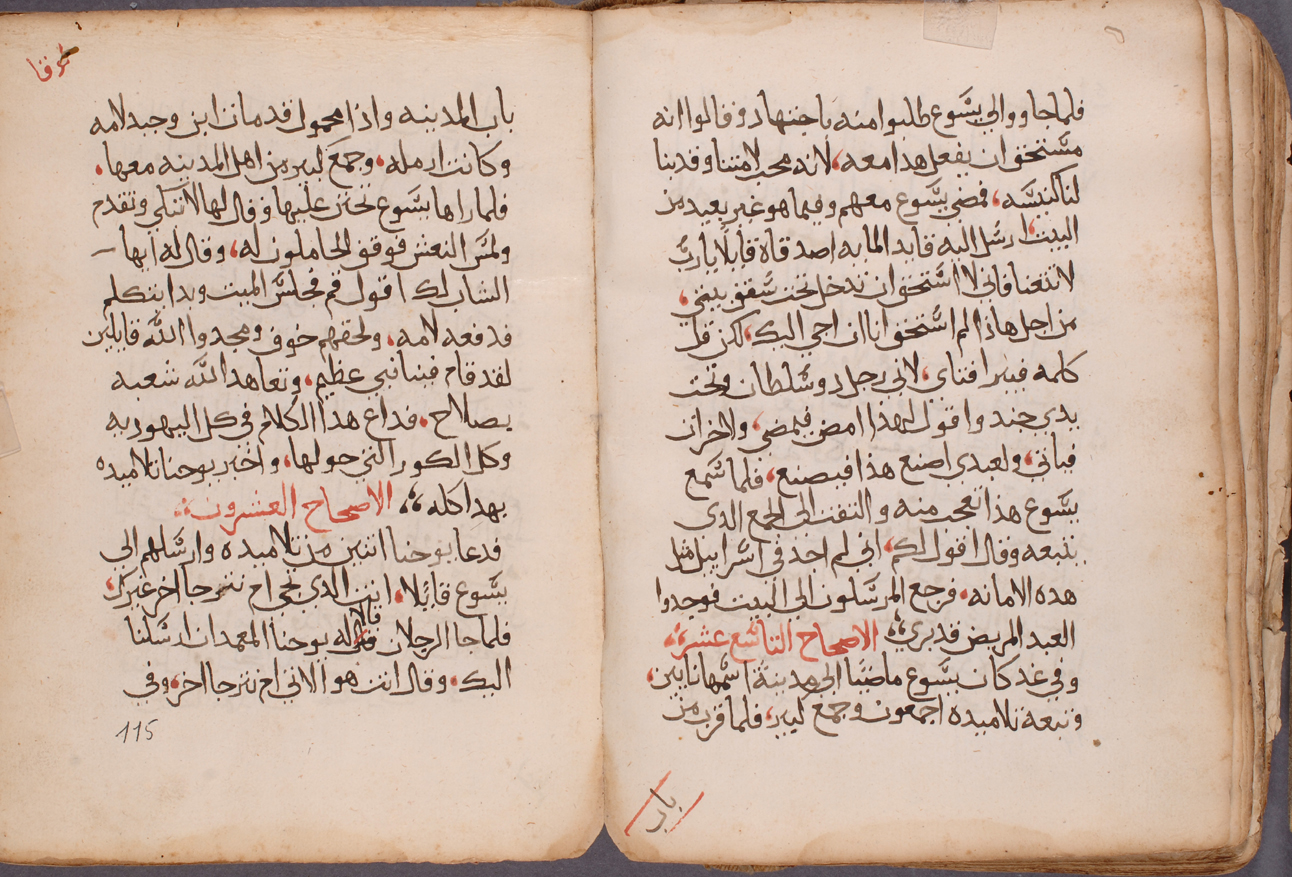 فلما جاووا الي يسوع طلبوا منه باجتهاد وقالوا انه
مستحق ان يفعل هدا معه، لانه محب لامتنا وقد بنا
لنا كنيسه، فمضي يسوع معهم وفيما هو غير بعيد من
البيت، ارسل اليه قايد المايه اصدقاه قايلا يارب
لا تتعنا فاني لا استحق ان تدخل تحت سقف بيتي،
من اجل هاذا لم استحق انا ان اجي اليك، لكن قل
كلمه فيبرا فتاي، لاني رجل دو سلطان وتحت
يدي جند واقول لهذا امض فيمضي، ولاخر ات
فياتي، ولعبدي اصنع هذا فيصنع، فلما سمع
يسوع هذا تعجب منه والتفت الي الجمع الدي
يتبعه وقال اقول لكم، اني لم اجد في اسراييل مثل
هده الامانه، فرجع المرسلون الي البيت فوجدوا
العبد المريض قد بري، الاصحاح التاسع عشر،
وفي غد كان يسوع ماضيا الي مدينة اسمها نايين،
وتبعه تلاميده اجمعون وجمع كبير، فلما قرب من
باب
لوقا
باب المدينه واذا محمول قد مات ابن وحيد لامه
وكانت ارمله، وجمع كبير من اهل المدينه معها،
فلما راها يسوع تحنن عليها وقال لها لا تبكي وتقدم
ولمس النعش فوقف الحاملون له، وقال له ايها
الشاب لك اقول قم فجلس الميت وبدا يتكلم
فدفعه لامه، ولحقهم خوف ومجدوا الله قايلين
لقد قام فينا نبي عظيم، وتعاهد الله شعبه
بصلاح، فداع هدا الكلام في كل اليهوديه
وكل الكور التي حولها، واخبر يوحنا تلاميده
بهدا كله، الاصحاح العشرون،
فدعا يوحنا اتنين من تلاميده وارسلهم الي
يسوع قايلا، انت الدي تجي ام نترجا اخر غيرك،
فلما جا الرجلان قالا له يوحنا المعمدان ارسلنا
اليك، وقال انت هو الاتي ام نترجا اخر، وفي
115